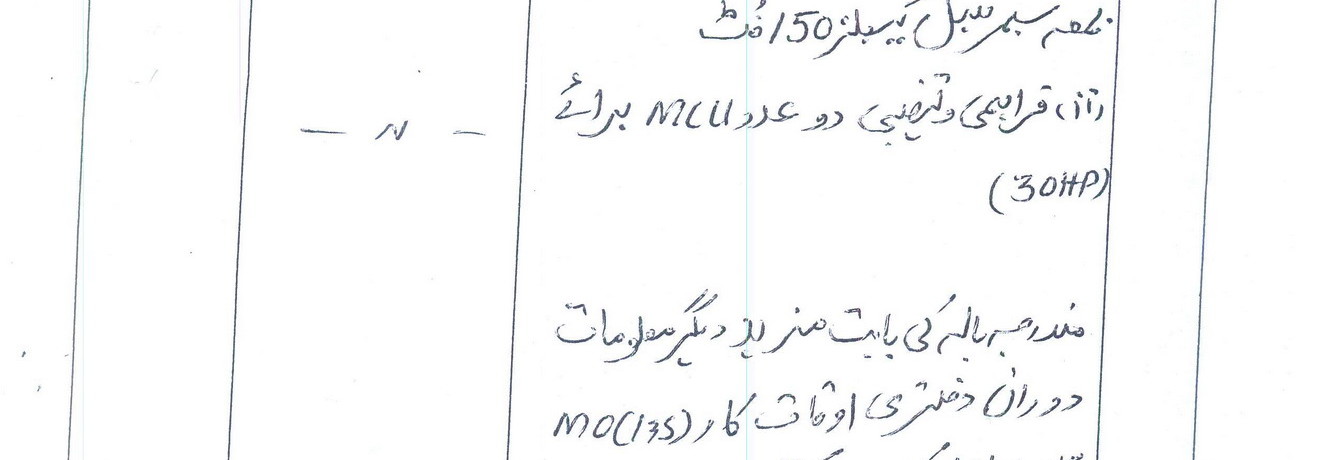 قطعہ سبمرسیبل کیبلز 150 فُٹ
(ii) فراہمی و تنصیبی دو عدد MCU برائے
(30HP)
— 〃 —
مندرجہ بالا کی بابت مزید دیگر معلومات
دوران دفتری اوقات کار MO(I&S)